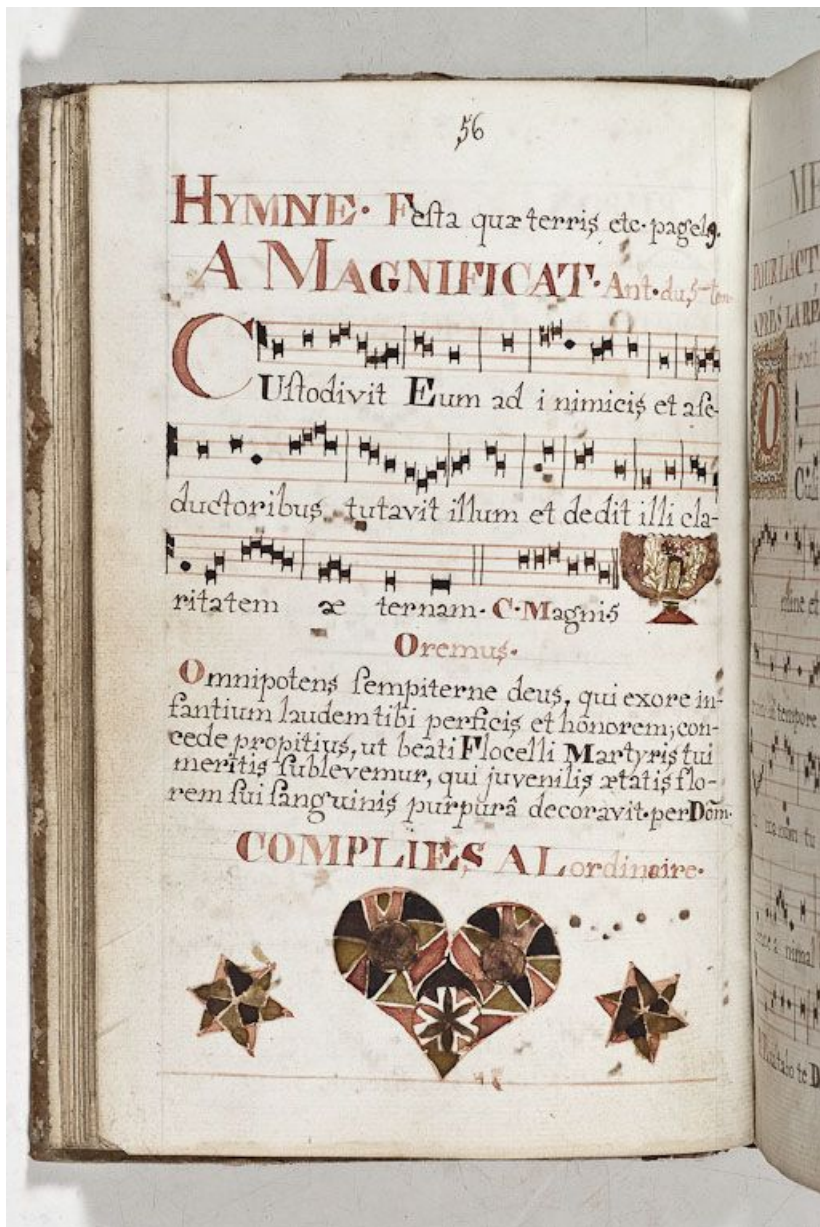 56
HYMNE. Festa quæ terris etc. page
A MAGNIFICAT. Ant. du 5
CUstodivit Eum ad i nimicis et a se-
ductoribus tutavit illum et dedit illi cla-
ritatem æ ternam. C. Magnis
Oremus.
Omnipotens sempiterne deus, qui exore in-
fantium laudem tibi perficis et honorem; con-
cede propitius, ut beati Flocelli Martyris tui
meritis sublevemur, qui juvenilis ætatis flo-
rem sui sanguinis purpurâ decoravit. per Dom.
COMPLIES A Lordinaire.
ME
POUR L'ACT
APRÉS LA RÉ
O
tempore
te D